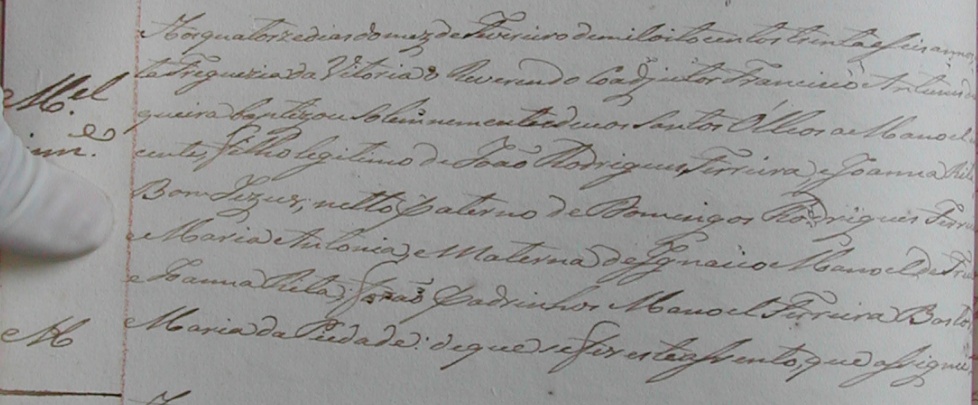 Aos quatorze dias do mez de Fevereiro de mil oito centos trinta e seis annos
ta Freguezia da Vitoria o Reverendo Coadjutor Francisco Antonio
M.el
queira baptizou solemnemente e deu os Santos Olleos a Manoel
inn.e
cente, filho legitimo de João Rodrigues Ferreira, e Joanna Rita
Bom Jezus; netto paterno de Domingos Rodrigues Ferre
e Maria Antonia, e Materna de Ignacio Manoel de
e Joanna Rita; forão Padrinhos Manoel Ferreira Basto
M
Maria da Piedade: de que se fez este assento, que assignei